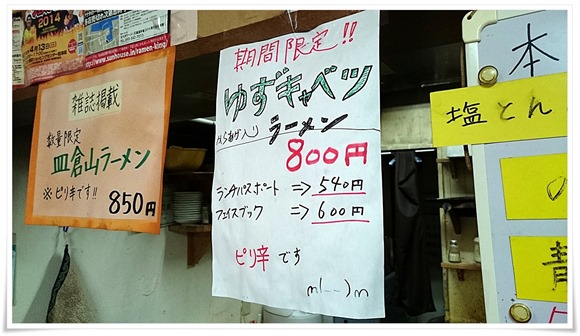 2014
4月13日
http://www.sunhouse.in/ramen-king/
雑誌掲載
数量限定
皿倉山ラーメン
※ピリ辛です!!
850円
期間限定!!
ゆずキャベツ
からあげ入り ラーメン
800円
ランチパスポート => 540円
フェイスブック => 600円
ピリ辛です
m(__)m
本
塩とん
の
青